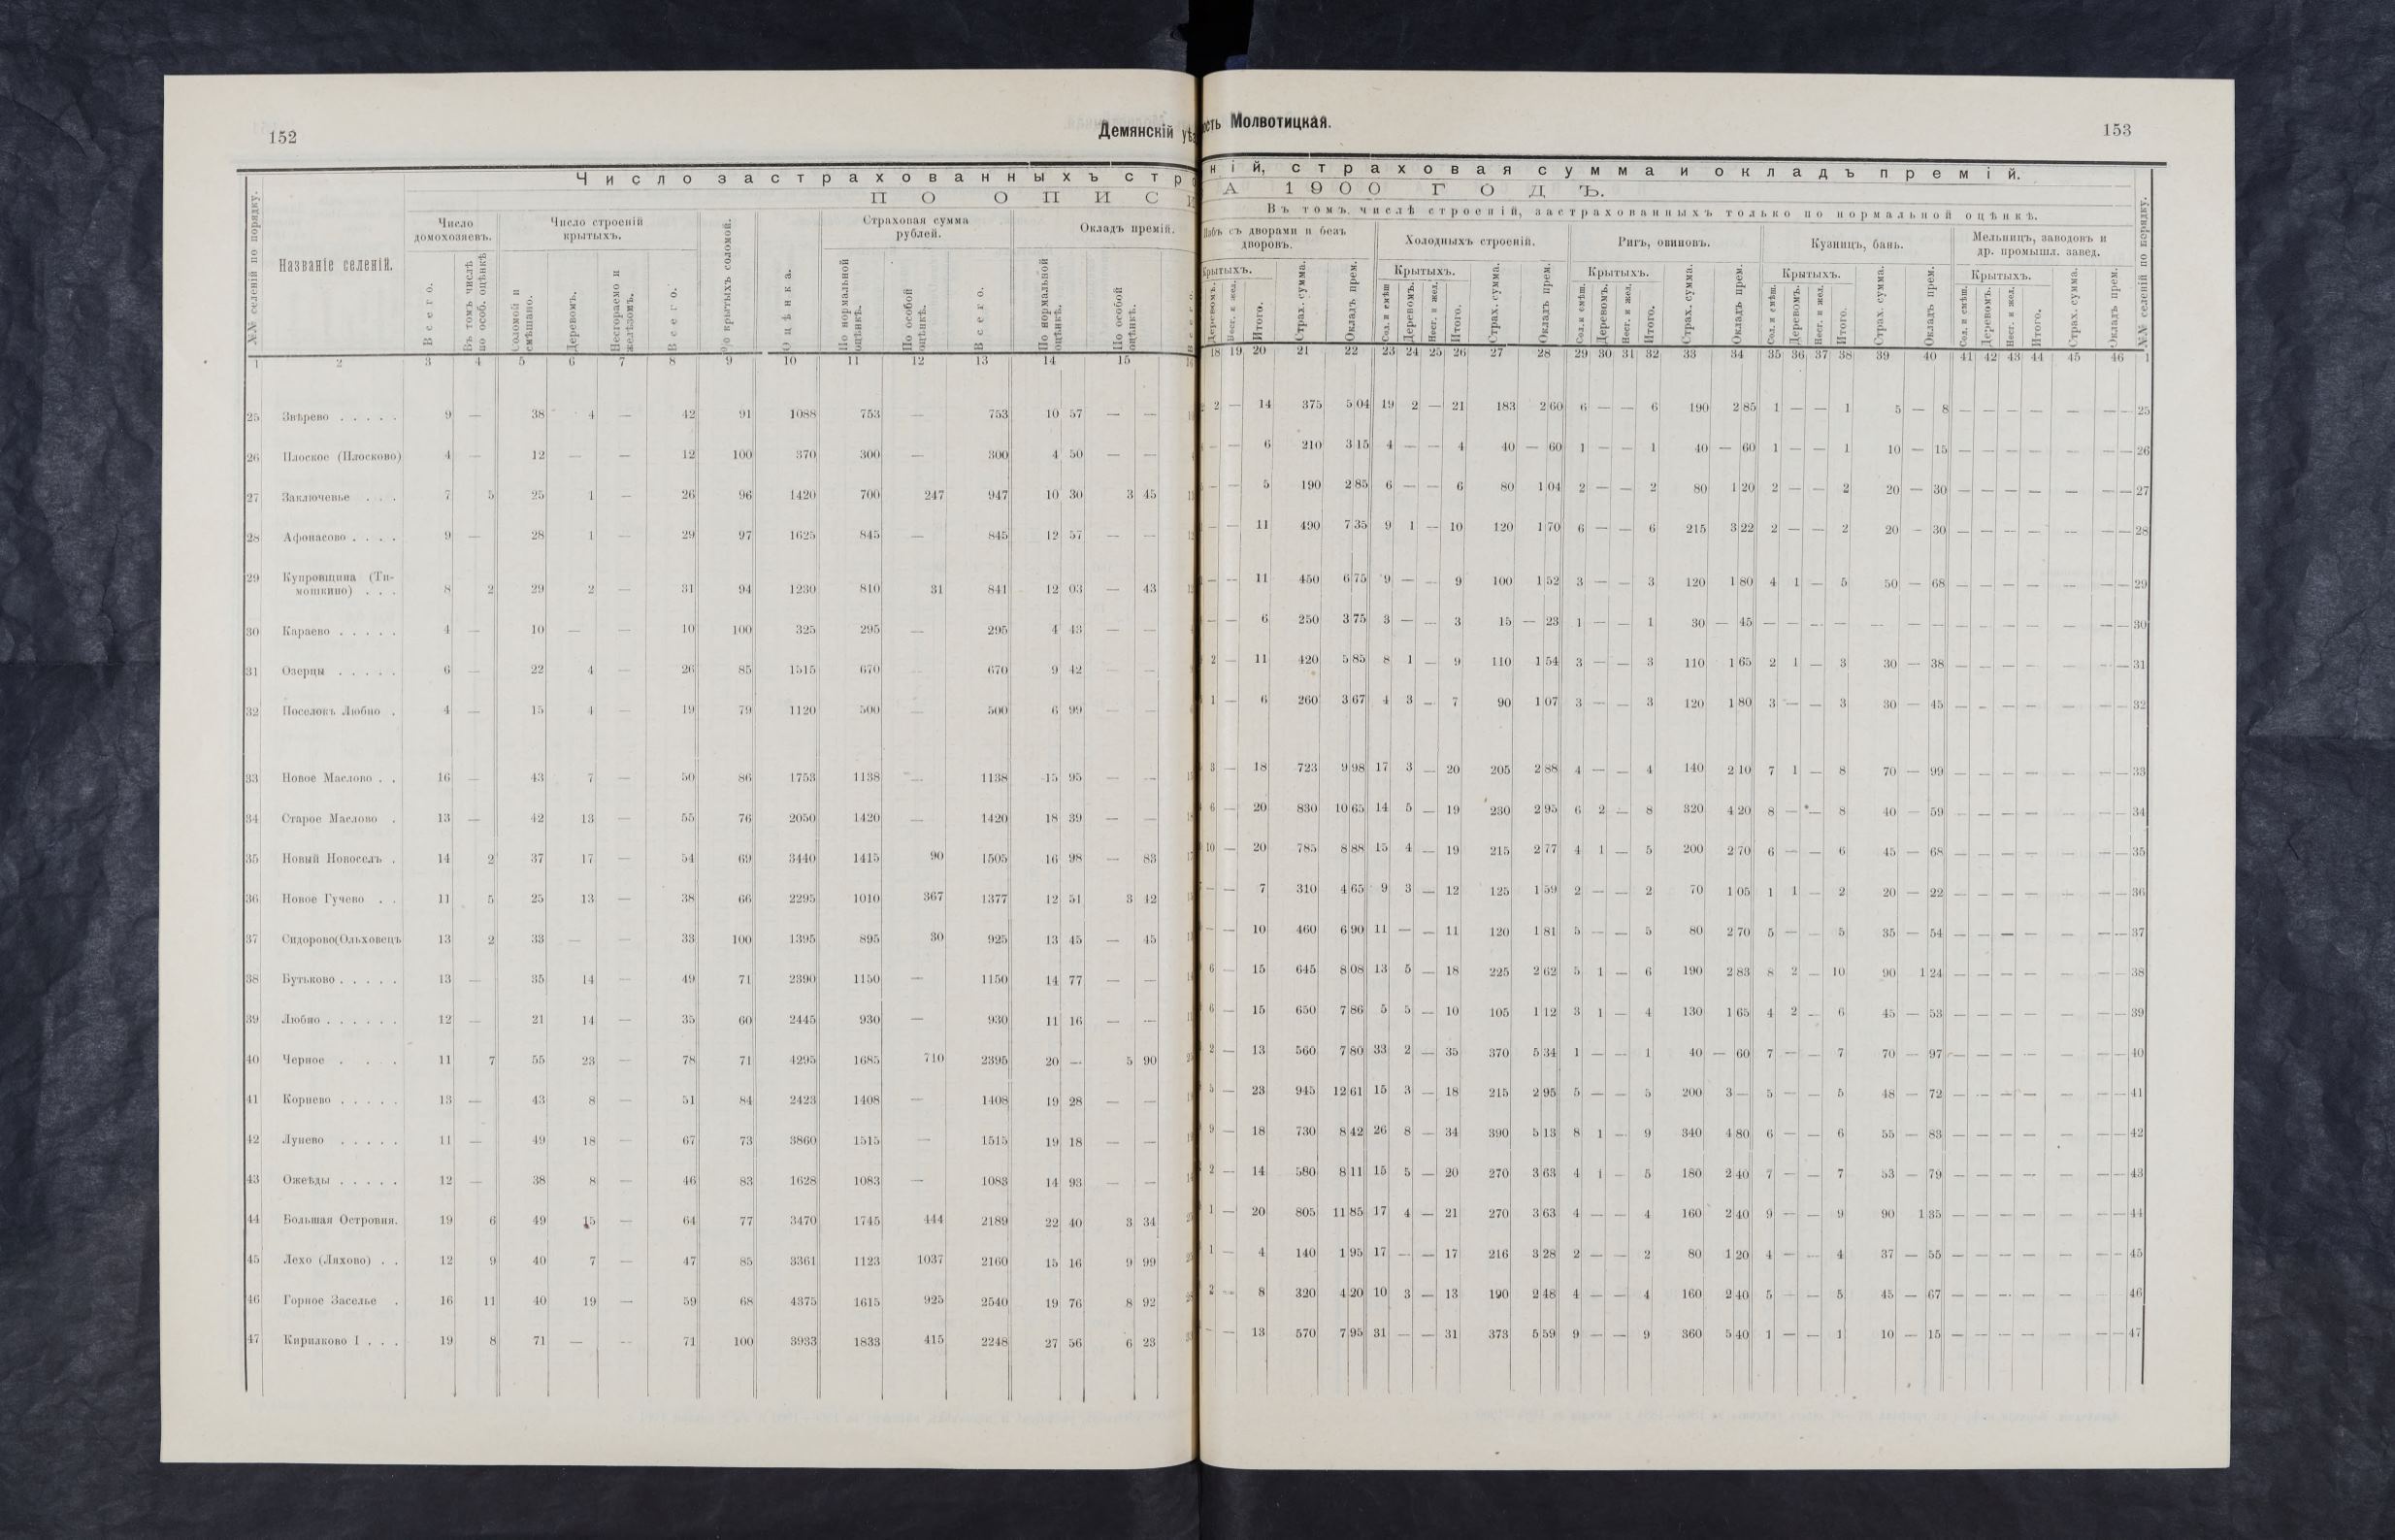 152
Демянскій
Число застрахованныхъ
ПО ОПИС
№№ селеній по порядку.
Названіе селеній.
Число домохозяевъ.
Число строеній крытыхъ.
% крытыхъ соломой.
Оцѣнка.
Страховая сумма рублей.
Окладъ премій.
Всего.
Въ томъ числѣ по особ. оцѣнкѣ
Соломой и смѣшано.
Деревомъ.
Несгораемо и желѣзомъ.
Всего.
По нормальной оцѣнкѣ.
По особой оцѣнкѣ.
Всего.
По нормальной оцѣнкѣ.
По особой оцѣнкѣ.
1 2 3 4 5 6 7 8 9 10 11 12 13 14 15
25 Звѣрево . . . . . 9 — 38 4 — 42 91 1088 753 — 753 10 57 — —
26 Плоское (Плосково) 4 — 12 — — 12 100 370 300 — 300 4 50 — —
27 Заключенье . . . 7 5 25 1 — 26 96 1420 700 247 947 10 30 3 45
28 Афонасово . . . . 9 — 28 1 — 29 97 1625 845 — 845 12 57 — —
29 Купровщина (Ти-
мошкино) . . . 8 2 29 2 — 31 94 1230 810 31 841 12 03 — 43
30 Караево . . . . . 4 — 10 — — 10 100 325 295 — 295 4 43 — —
31 Озерцы . . . . . 6 — 22 4 — 26 85 1515 670 — 670 9 42 — —
32 Поселокъ Любно . 4 — 15 4 — 19 79 1120 500 — 500 6 99 — —
33 Новое Маслово . . 16 — 43 7 — 50 86 1753 1138 — 1138 15 95 — —
34 Старое Маслово . 13 — 42 13 — 55 76 2050 1420 — 1420 18 39 — —
35 Новый Новоселъ . 14 2 37 17 — 54 69 3440 1415 90 1505 16 98 — 83
36 Новое Гучево . . 11 5 25 13 — 38 66 2295 1010 367 1377 12 51 3 42
37 Сидорово(Ольховецъ 13 2 33 — — 33 100 1395 895 30 925 13 45 — 45
38 Бутьково . . . . . 13 — 35 14 — 49 71 2390 1150 — 1150 14 77 — —
39 Любно . . . . . . 12 — 21 14 — 35 60 2445 930 — 930 11 16 — —
40 Черное . . . 11 7 55 23 — 78 71 4295 1685 710 2395 20 — 5 90
41 Корнево . . . . . 13 — 43 8 — 51 84 2423 1408 — 1408 19 28 — —
42 Лунево . . . . . 11 — 49 18 — 67 73 3860 1515 — 1515 19 18 — —
43 Ожеѣды . . . . . 12 — 38 8 — 46 83 1628 1083 — 1083 14 93 — —
44 Большая Островня. 19 6 49 15 — 64 77 3470 1745 444 2189 22 40 3 34
45 Лехо (Ляхово) . . 12 9 40 7 — 47 85 3361 1123 1037 2160 15 16 9 99
46 Горное Заселье . 16 11 40 19 — 59 68 4375 1615 925 2540 19 76 8 92
47 Кирилково I . . . 19 8 71 — — 71 100 3933 1833 415 2248 27 56 6 23
ость Молвотицкая.
153
ній, страховая сумма и окладъ премій.
А 1900 ГОДЪ.
Въ томъ числѣ строеній, застрахованныхъ только по нормальной оцѣнкѣ.
Избъ съ дворами и безъ дворовъ.
Холодныхъ строеній.
Ригъ, овиновъ.
Кузницъ, бань.
Мельницъ, заводовъ и др. промышл. завед.
№№ селеній по порядку.
Крытыхъ. Крытыхъ. Крытыхъ. Крытыхъ. Крытыхъ.
Деревомъ. Несг. и жел. Итого. Страх. сумма. Окладъ прем.
Сол. и смѣш Деревомъ. Несг. и жел. Итого. Страх. сумма. Окладъ прем.
Сол. и смѣш. Деревомъ. Несг. и жел. Итого. Страх. сумма. Окладъ прем.
Сол. и смѣш. Деревомъ. Несг. и жел. Итого. Страх. сумма. Окладъ прем.
Сол. и смѣш. Деревомъ. Несг. и жел. Итого. Страх. сумма. Окладъ прем.
18 19 20 21 22 23 24 25 26 27 28 29 30 31 32 33 34 35 36 37 38 39 40 41 42 43 44 45 46 1
2 — 14 375 5 04 19 2 — 21 183 2 60 6 — — 6 190 2 85 1 — — 1 5 — 8 — — — — — — — 25
— — 6 210 3 15 4 — — 4 40 — 60 1 — — 1 40 — 60 1 — — 1 10 — 15 — — — — — — — 26
— — 5 190 2 85 6 — — 6 80 1 04 2 — — 2 80 1 20 2 — — 2 20 — 30 — — — — — — — 27
— — 11 490 7 35 9 1 — 10 120 1 70 6 — — 6 215 3 22 2 — — 2 20 — 30 — — — — — — — 28
— — 11 450 6 75 9 — — 9 100 1 52 3 — — 3 120 1 80 4 1 — 5 50 — 68 — — — — — — — 29
— — 6 250 3 75 3 — — 3 15 — 23 1 — — 1 30 — 45 — — — — — — — — — — — — — — 30
2 — 11 420 5 85 8 1 — 9 110 1 54 3 — — 3 110 1 65 2 1 — 3 30 — 38 — — — — — — — 31
1 — 6 260 3 67 4 3 — 7 90 1 07 3 — — 3 120 1 80 3 — — 3 30 — 45 — — — — — — — 32
3 — 18 723 9 98 17 3 — 20 205 2 88 4 — — 4 140 2 10 7 1 — 8 70 — 99 — — — — — — — 33
6 — 20 830 10 65 14 5 — 19 230 2 95 6 2 — 8 320 4 20 8 — — 8 40 — 59 — — — — — — — 34
10 — 20 785 8 88 15 4 — 19 215 2 77 4 1 — 5 200 2 70 6 — — 6 45 — 68 — — — — — — — 35
— — 7 310 4 65 9 3 — 12 125 1 59 2 — — 2 70 1 05 1 1 — 2 20 — 22 — — — — — — — 36
— — 10 460 6 90 11 — — 11 120 1 81 5 — — 5 80 2 70 5 — — 5 35 — 54 — — — — — — — 37
6 — 15 645 8 08 13 5 — 18 225 2 62 5 1 — 6 190 2 83 8 2 — 10 90 1 24 — — — — — — — 38
6 — 15 650 7 86 5 5 — 10 105 1 12 3 1 — 4 130 1 65 4 2 — 6 45 — 53 — — — — — — — 39
2 — 13 560 7 80 33 2 — 35 370 5 34 1 — — 1 40 — 60 7 — — 7 70 — 97 — — — — — — — 40
5 — 23 945 12 61 15 3 — 18 215 2 95 5 — — 5 200 3 — 5 — — 5 48 — 72 — — — — — — — 41
9 — 18 730 8 42 26 8 — 34 390 5 13 8 1 — 9 340 4 80 6 — — 6 55 — 83 — — — — — — — 42
2 — 14 580 8 11 15 5 — 20 270 3 63 4 1 — 5 180 2 40 7 — — 7 53 — 79 — — — — — — — 43
1 — 20 805 11 85 17 4 — 21 270 3 63 4 — — 4 160 2 40 9 — — 9 90 1 35 — — — — — — — 44
1 — 4 140 1 95 17 — — 17 216 3 28 2 — — 2 80 1 20 4 — — 4 37 — 55 — — — — — — — 45
2 — 8 320 4 20 10 3 — 13 190 2 48 4 — — 4 160 2 40 5 — — 5 45 — 67 — — — — — 46
— — 13 570 7 95 31 — — 31 373 5 59 9 — — 9 360 5 40 1 — — 1 10 — 15 — — — — — — — 47